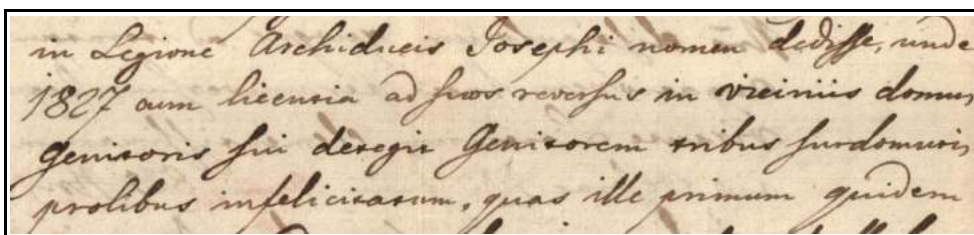 in Legione Archiducis Josephi nomen dedisse, unde
1827 cum licentia ad suos reversus in viciniis domus
Genitoris sui detegit Genitorem tribus surdomutis
prolibus infelicitatum, quas ille primum quidem